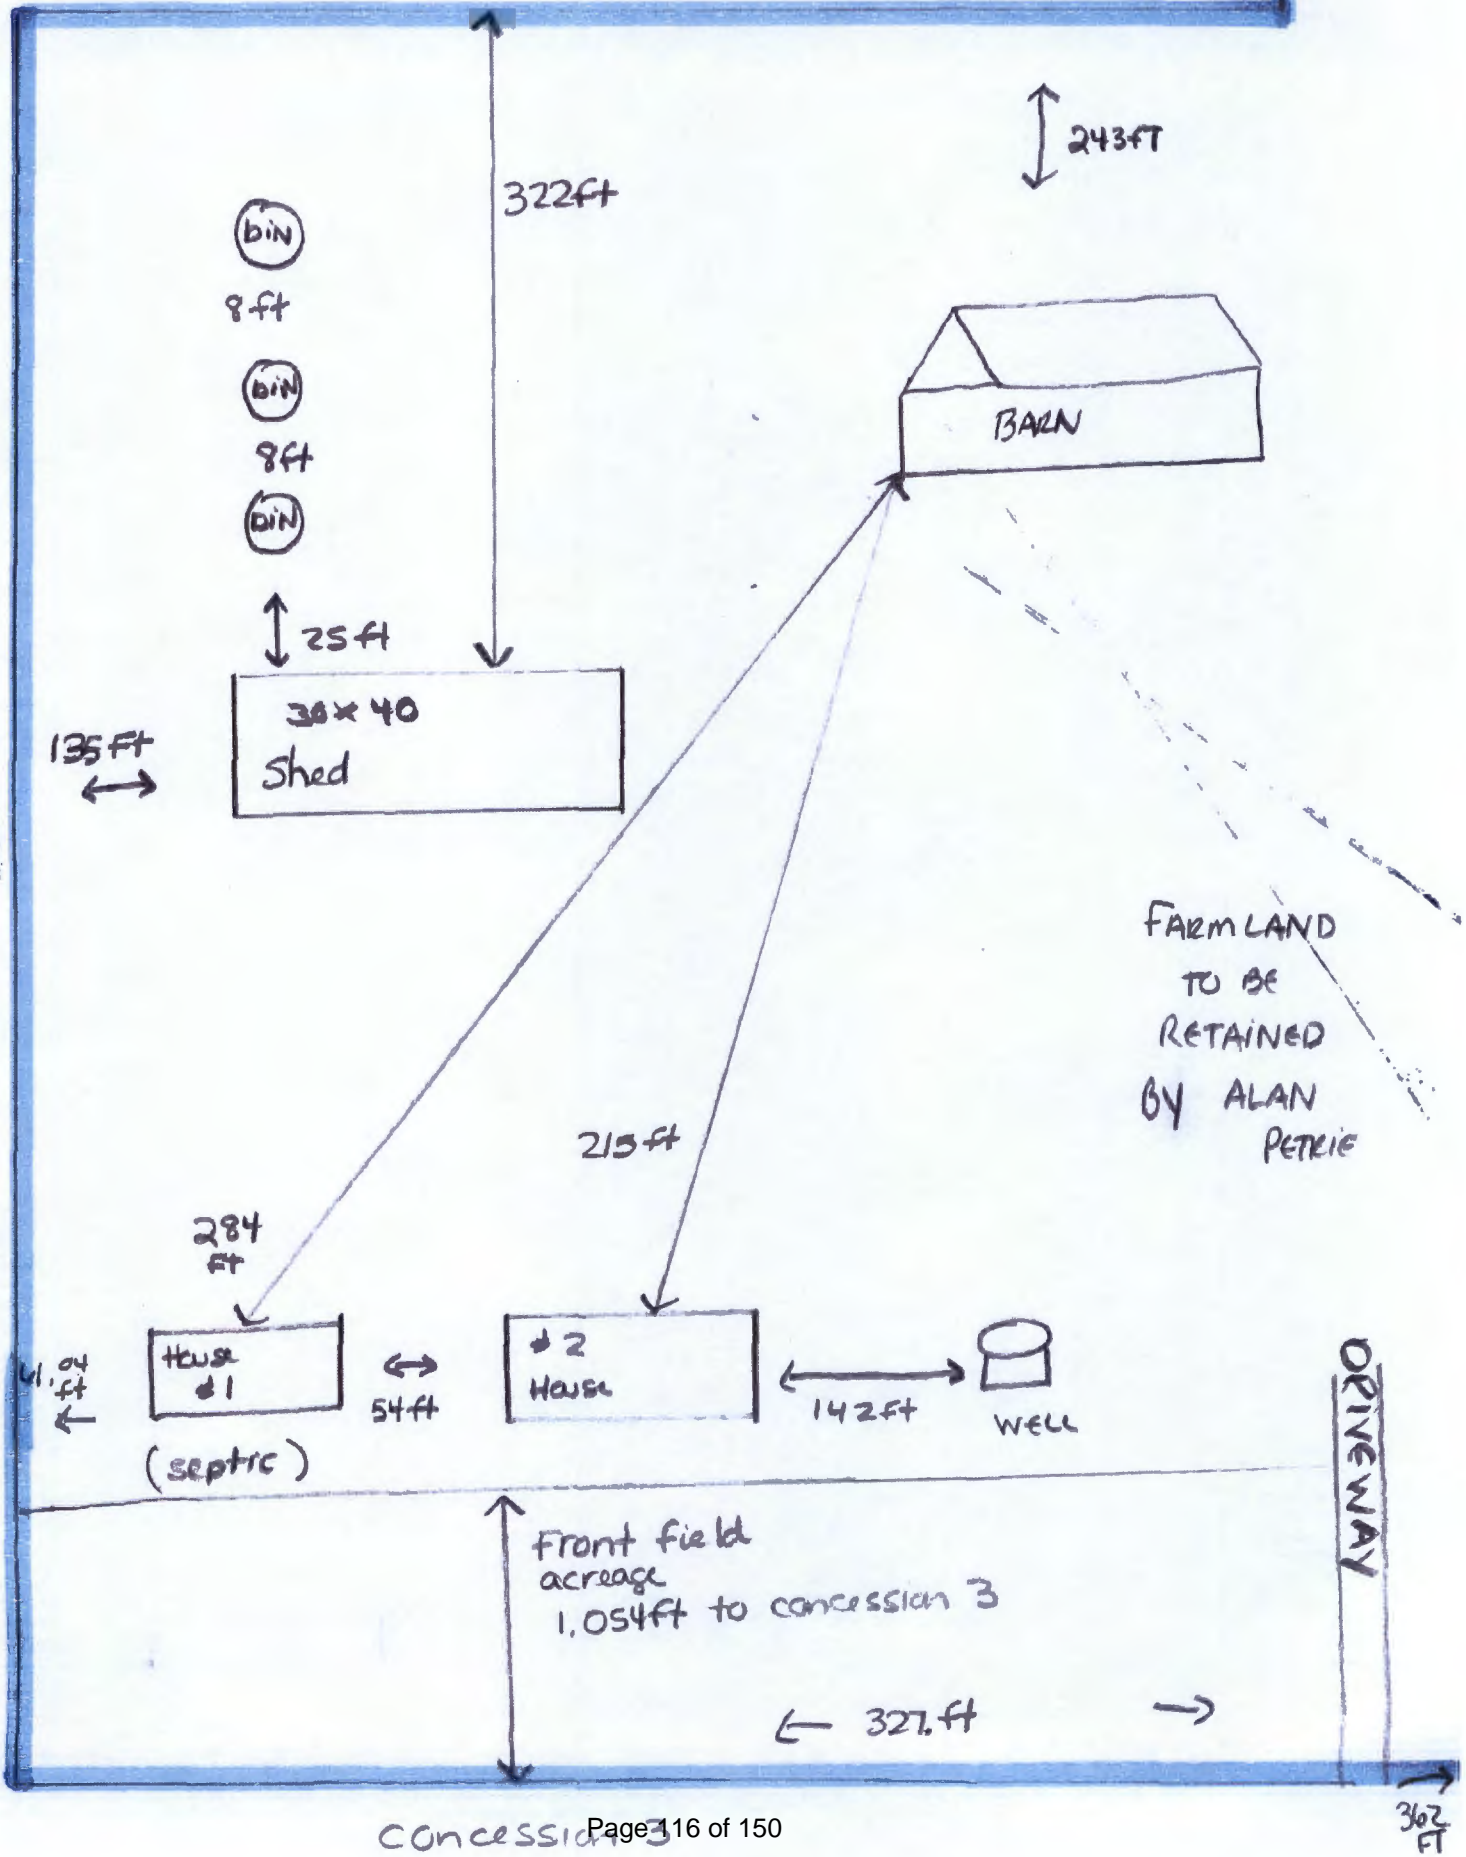 243ft
322ft
biN
8ft
biN
8ft
biN
BARN
25ft
30x40
Shed
135Ft
FARMLAND
TO BE
RETAINED
BY ALAN
PETRIE
215ft
284
Ft
House
#1
(septic)
54ft
#2
House
142ft
WELL
DRIVEWAY
Front field
acreage
1.054ft to concession 3
327.ft
362
FT
concession 3
Page 116 of 150